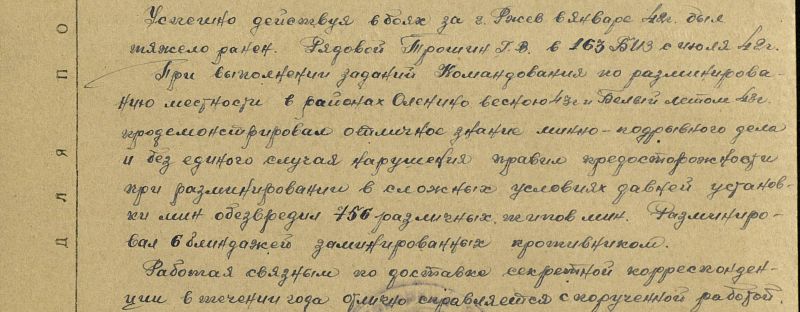 Успешно действуя в боях за г. Ржев в январе 42г. был
тяжело ранен. Рядовой Трошин Г.В. в 163 БИЗ с июля 42г.
При выполнении заданий Командования по разминирова-
нию местности в районах Оленино весною 43г и Белый летом 43г.
продемонстрировал отличное знание минно-подрывного дела
и без единого случая нарушения правил предосторожности
при разминировании в сложных условиях давней установ-
ки мин обезвредил 756 различных типов мин. Разминиро-
вал 6 блиндажей заминированных противником.
Работая связным по доставке секретной корреспонден-
ции в течении года отлично справляется с порученной работой.
для по